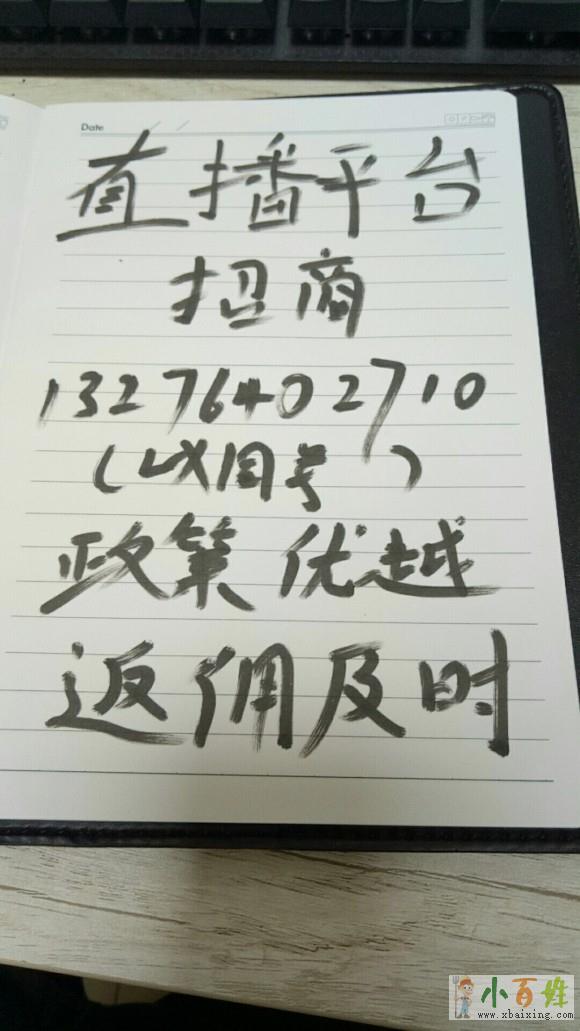 Date
直播平台
招商
13276402710
(VX同号)
政策优越
返佣及时
小百姓
www.xbaixing.com